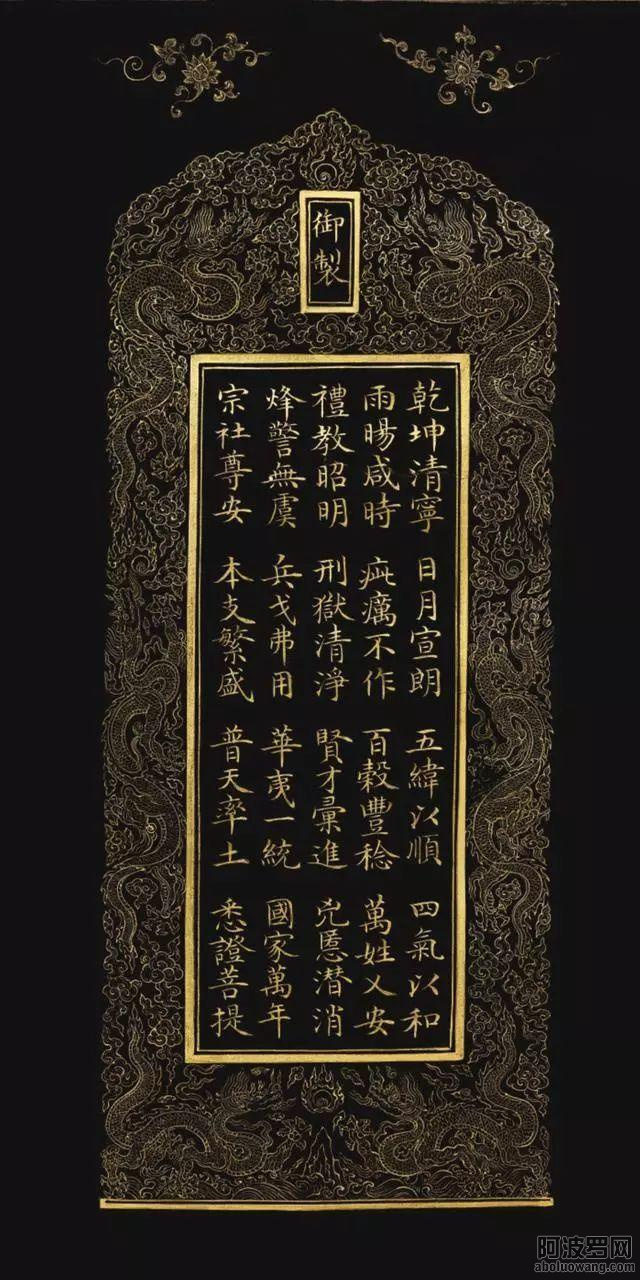 御製
乾坤清寧 日月宣朗 五緯以順 四氣以和
雨暘咸時 疵癘不作 百穀豐稔 萬姓乂安
禮教昭明 刑獄清淨 賢才彙進 兇慝潜消
烽警無虞 兵戈弗用 華夷一統 國家萬年
宗社尊安 本支繁盛 普天率土 悉證菩提
阿波罗网
aboluowang.com